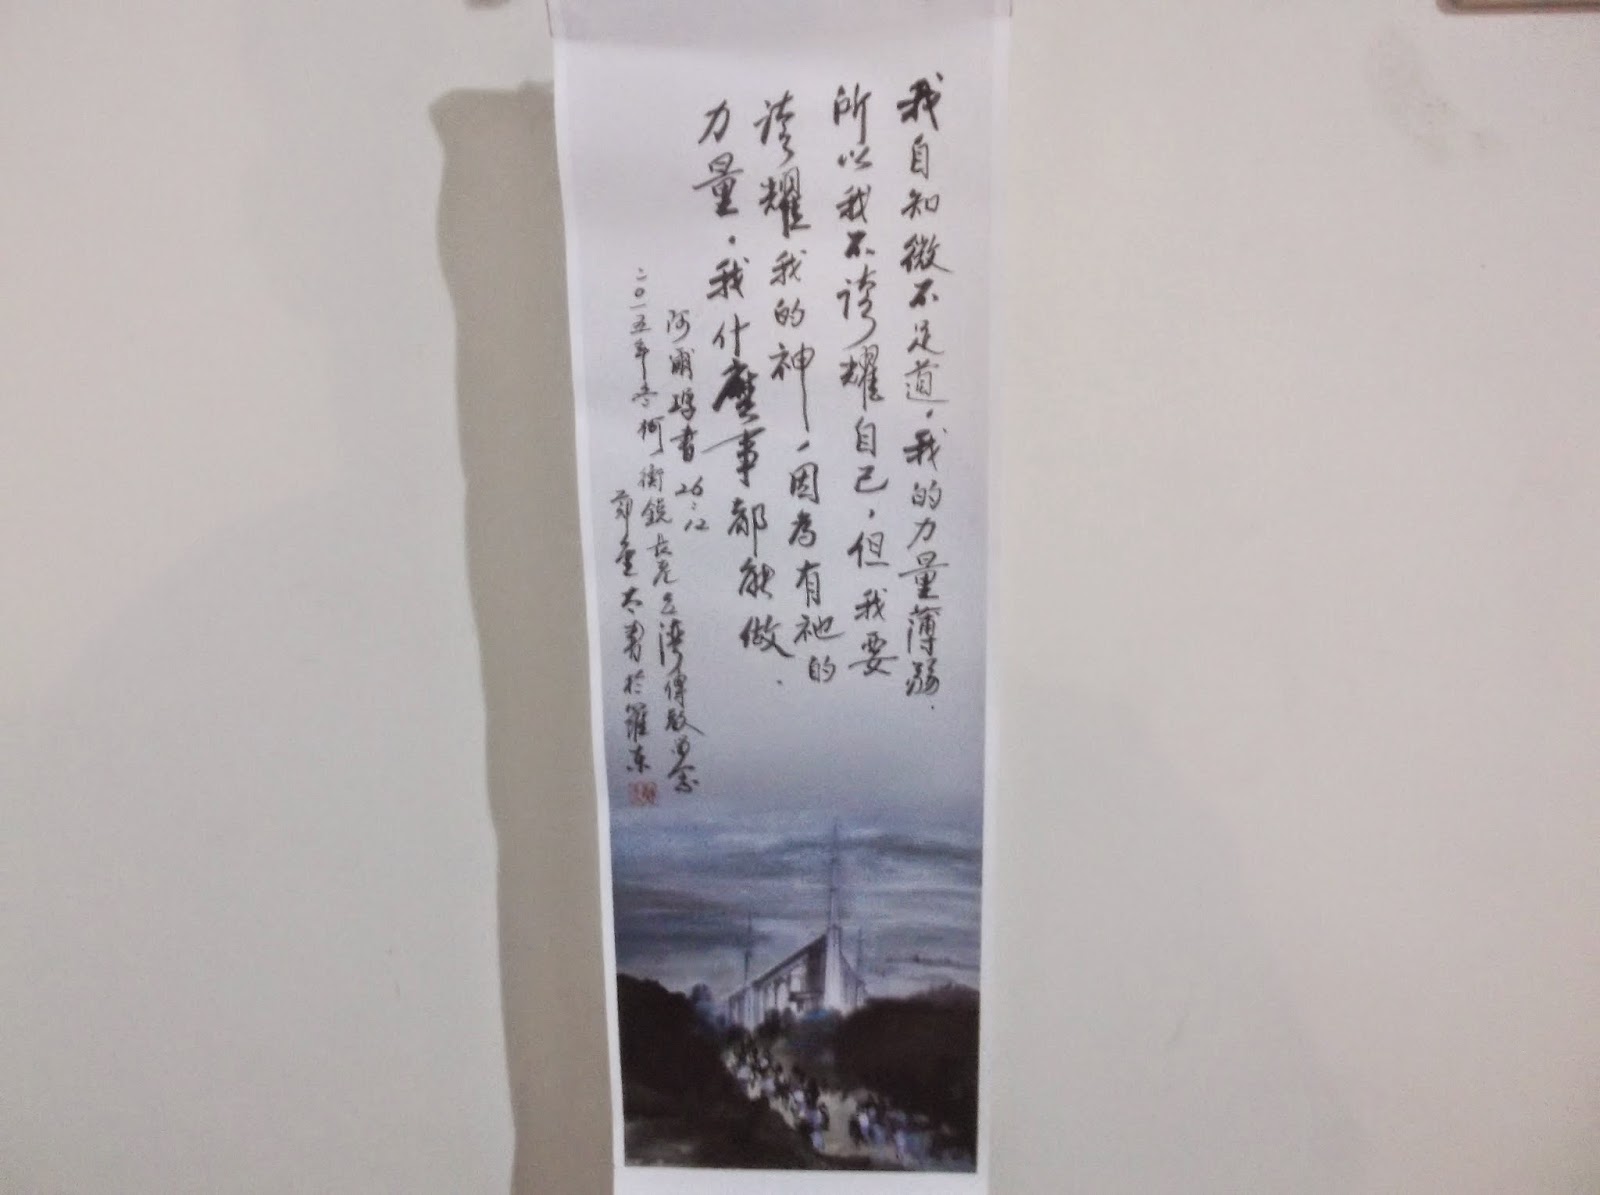 我自知微不足道，我的力量薄弱．
所以我不誇耀自己，但我要
誇耀我的神，因為有祂的
力量，我什麼事都能做．
阿爾瑪書 26:12
二〇一五年冬 何衛銳長老台灣傳教留念
鄭 於羅東